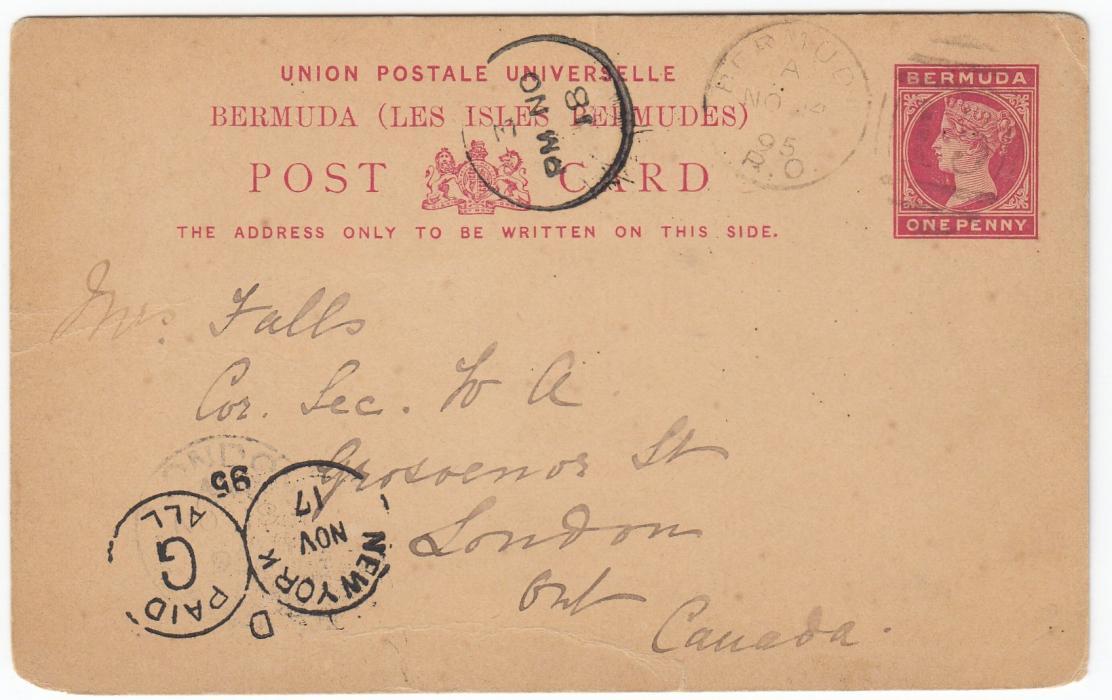 UNION POSTALE UNIVERSELLE
BERMUDA (LES ISLES BERMUDES)
POST CARD
THE ADDRESS ONLY TO BE WRITTEN ON THIS SIDE.
BERMUDA
ONE PENNY
A
NO 14
95
R.O.
PM NO
18
Mrs. Falls
Cor. Sec. W A
Grosvenor St
London
Ont
Canada.
95
NEW YORK
NOV
17
PAID
G
ALL
D